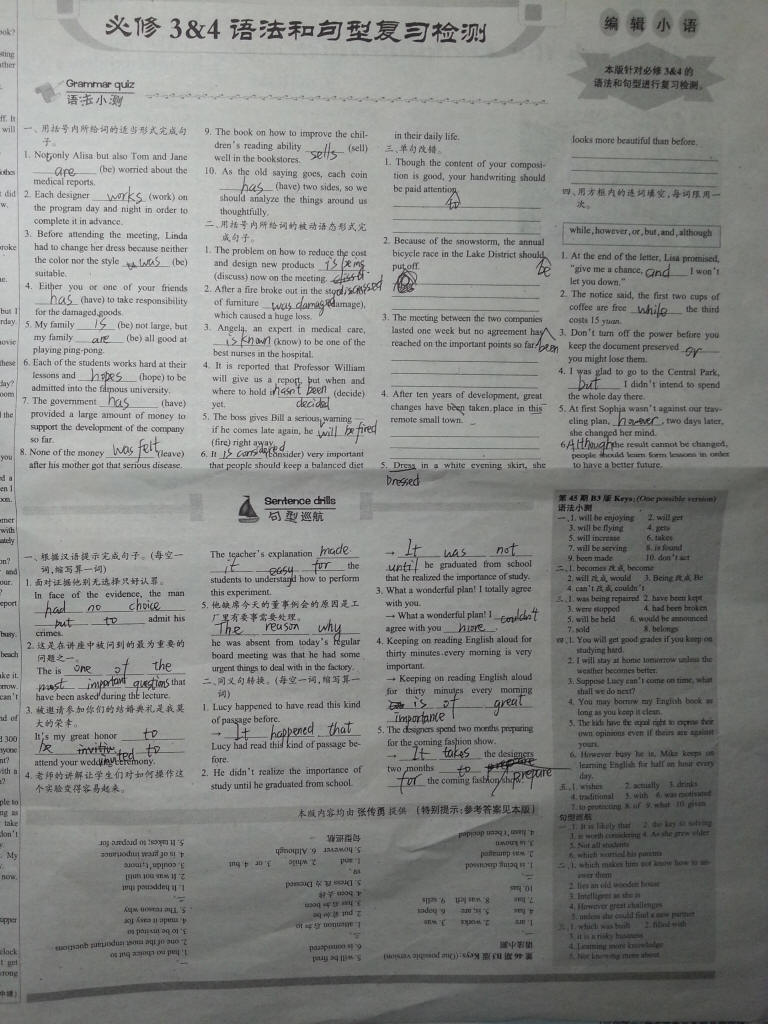 必修 3&4 语法和句型复习检测
编辑小语
本版针对必修 3&4 的
语法和句型进行复习检测。
Grammar quiz
语法小测
一、用括号内所给词的适当形式完成句
子。
1. Not only Alisa but also Tom and Jane
are (be) worried about the
medical reports.
2. Each designer works (work) on
the program day and night in order to
complete it in advance.
3. Before attending the meeting, Linda
had to change her dress because neither
the color nor the style was (be)
suitable.
4. Either you or one of your friends
has (have) to take responsibility
for the damaged goods.
5. My family is (be) not large, but
my family are (be) all good at
playing ping-pong.
6. Each of the students works hard at their
lessons and hopes (hope) to be
admitted into the famous university.
7. The government has (have)
provided a large amount of money to
support the development of the company
so far.
8. None of the money was felt (leave)
after his mother got that serious disease.
9. The book on how to improve the chil-
dren's reading ability sells (sell)
well in the bookstores.
10. As the old saying goes, each coin
has (have) two sides, so we
should analyze the things around us
thoughtfully.
二、用括号内所给词的被动语态形式完
成句子。
1. The problem on how to reduce the cost
and design new products is being
(discuss) now on the meeting. discussed
2. After a fire broke out in the
of furniture was damaged (damage),
which caused a huge loss.
3. Angela, an expert in medical care,
is known (know) to be one of the
best nurses in the hospital.
4. It is reported that Professor William
will give us a report, but when and
where to hold it hasn't been (decide)
yet. decided
5. The boss gives Bill a serious warning
if he comes late again, he will be fired
(fire) right away.
6. It is considered (consider) very important
that people should keep a balanced diet
in their daily life.
三、单句改错。
1. Though the content of your composi-
tion is good, your handwriting should
be paid attention.
to
2. Because of the snowstorm, the annual
bicycle race in the Lake District should
put off.
be
3. The meeting between the two companies
lasted one week but no agreement has
reached on the important points so far.
been
4. After ten years of development, great
changes have been taken place in this
remote small town.
5. Dress in a white evening skirt, she
Dressed
looks more beautiful than before.
四、用方框内的连词填空,每词限用一
次。
while, however, or, but, and, although
1. At the end of the letter, Lisa promised,
"give me a chance, and I won't
let you down."
2. The notice said, the first two cups of
coffee are free while the third
costs 15 yuan.
3. Don't turn off the power before you
keep the document preserved or
you might lose them.
4. I was glad to go to the Central Park,
but I didn't intend to spend
the whole day there.
5. At first Sophia wasn't against our trav-
eling plan, however, two days later,
she changed her mind.
6. Although the result cannot be changed,
people should learn form lessons in order
to have a better future.
Sentence drills
句型巡航
一、根据汉语提示完成句子。(每空一
词,缩写算一词)
1. 面对证据他别无选择只好认罪。
In face of the evidence, the man
had no choice
but to admit his
crimes.
2. 这是在讲座中被问到的最为重要的
问题之一。
The is one of the
most important questions that
have been asked during the lecture.
3. 被邀请参加你们的结婚典礼是我莫
大的荣幸。
It's my great honor to
be invited to
attend your wedding ceremony.
4. 老师的讲解让学生们对如何操作这
个实验变得容易起来。
The teacher's explanation made
it easy for the
students to understand how to perform
this experiment.
5. 他缺席今天的董事例会的原因是工
厂里有要事需要处理。
The reason why
he was absent from today's regular
board meeting was that he had some
urgent things to deal with in the factory.
二、同义句转换。(每空一词,缩写算一
词)
1. Lucy happened to have read this kind
of passage before.
→ It happened that
Lucy had read this kind of passage be-
fore.
2. He didn't realize the importance of
study until he graduated from school.
→ It was not
until he graduated from school
that he realized the importance of study.
3. What a wonderful plan! I totally agree
with you.
→ What a wonderful plan! I couldn't
agree with you more.
4. Keeping on reading English aloud for
thirty minutes every morning is very
important.
→ Keeping on reading English aloud
for thirty minutes every morning
is of great
importance
5. The designers spend two months preparing
for the coming fashion show.
→ It takes the designers
two months to prepare
for the coming fashion show.
本版内容均由 张传勇 提供 (特别提示:参考答案见本版)
第 45 期 B3 版 Keys: (One possible version)
语法小测
一、1. will be enjoying 2. will get
3. will be flying 4. gets
5. will increase 6. takes
7. will be serving 8. is found
9. been made 10. don't act
二、1. becomes 改成 become
2. will 改成 would 3. Being 改成 Be
4. can't 改成 couldn't
三、1. was being repaired 2. have been kept
3. were stopped 4. had been broken
5. will be held 6. would be announced
7. sold 8. belongs
四、1. You will get good grades if you keep on
studying hard.
2. I will stay at home tomorrow unless the
weather becomes better.
3. Suppose Lucy can't come on time, what
shall we do next?
4. You may borrow my English book as
long as you keep it clean.
5. The kids have the equal right to express their
own opinions even if theirs are against
yours.
6. However busy he is, Mike keeps on
learning English for half an hour every
day.
五、1. wishes 2. actually 3. drinks
4. traditional 5. with 6. was motivated
7. to protecting 8. of 9. what 10. given
句型巡航
一、1. It is likely that 2. the key to solving
3. is worth considering 4. As she grew older
5. Not all students
6. which worried his parents
二、1. which makes him not know how to an-
swer them
2. lies an old wooden house
3. Intelligent as she is
4. However great challenges
5. unless she could find a new partner
三、1. which was built 2. filled with
3. it is a risky business
4. Learning more knowledge
5. Not knowing more about
第 46 期 B3 版 Keys: (One possible version)
语法小测
一、
1. are 2. works 3. was
4. has 5. is; are 6. hopes
7. has 8. was left 9. sells
10. has
二、
1. is being discussed
2. was damaged
3. is known
4. hasn't been decided
5. will be fired
6. is considered
三、
1. attention 后加 to
2. put 前加 be
3. has 后加 been
4. been 去掉
5. Dress 改为 Dressed
四、
1. and 2. while 3. or 4. but
5. however 6. Although
句型巡航
一、
1. had no choice but to
2. one of the most important questions
3. to be invited to
4. made it easy for
5. The reason why
二、
1. It happened that
2. It was not until
3. couldn't; more
4. is of great importance
5. It takes; to prepare for